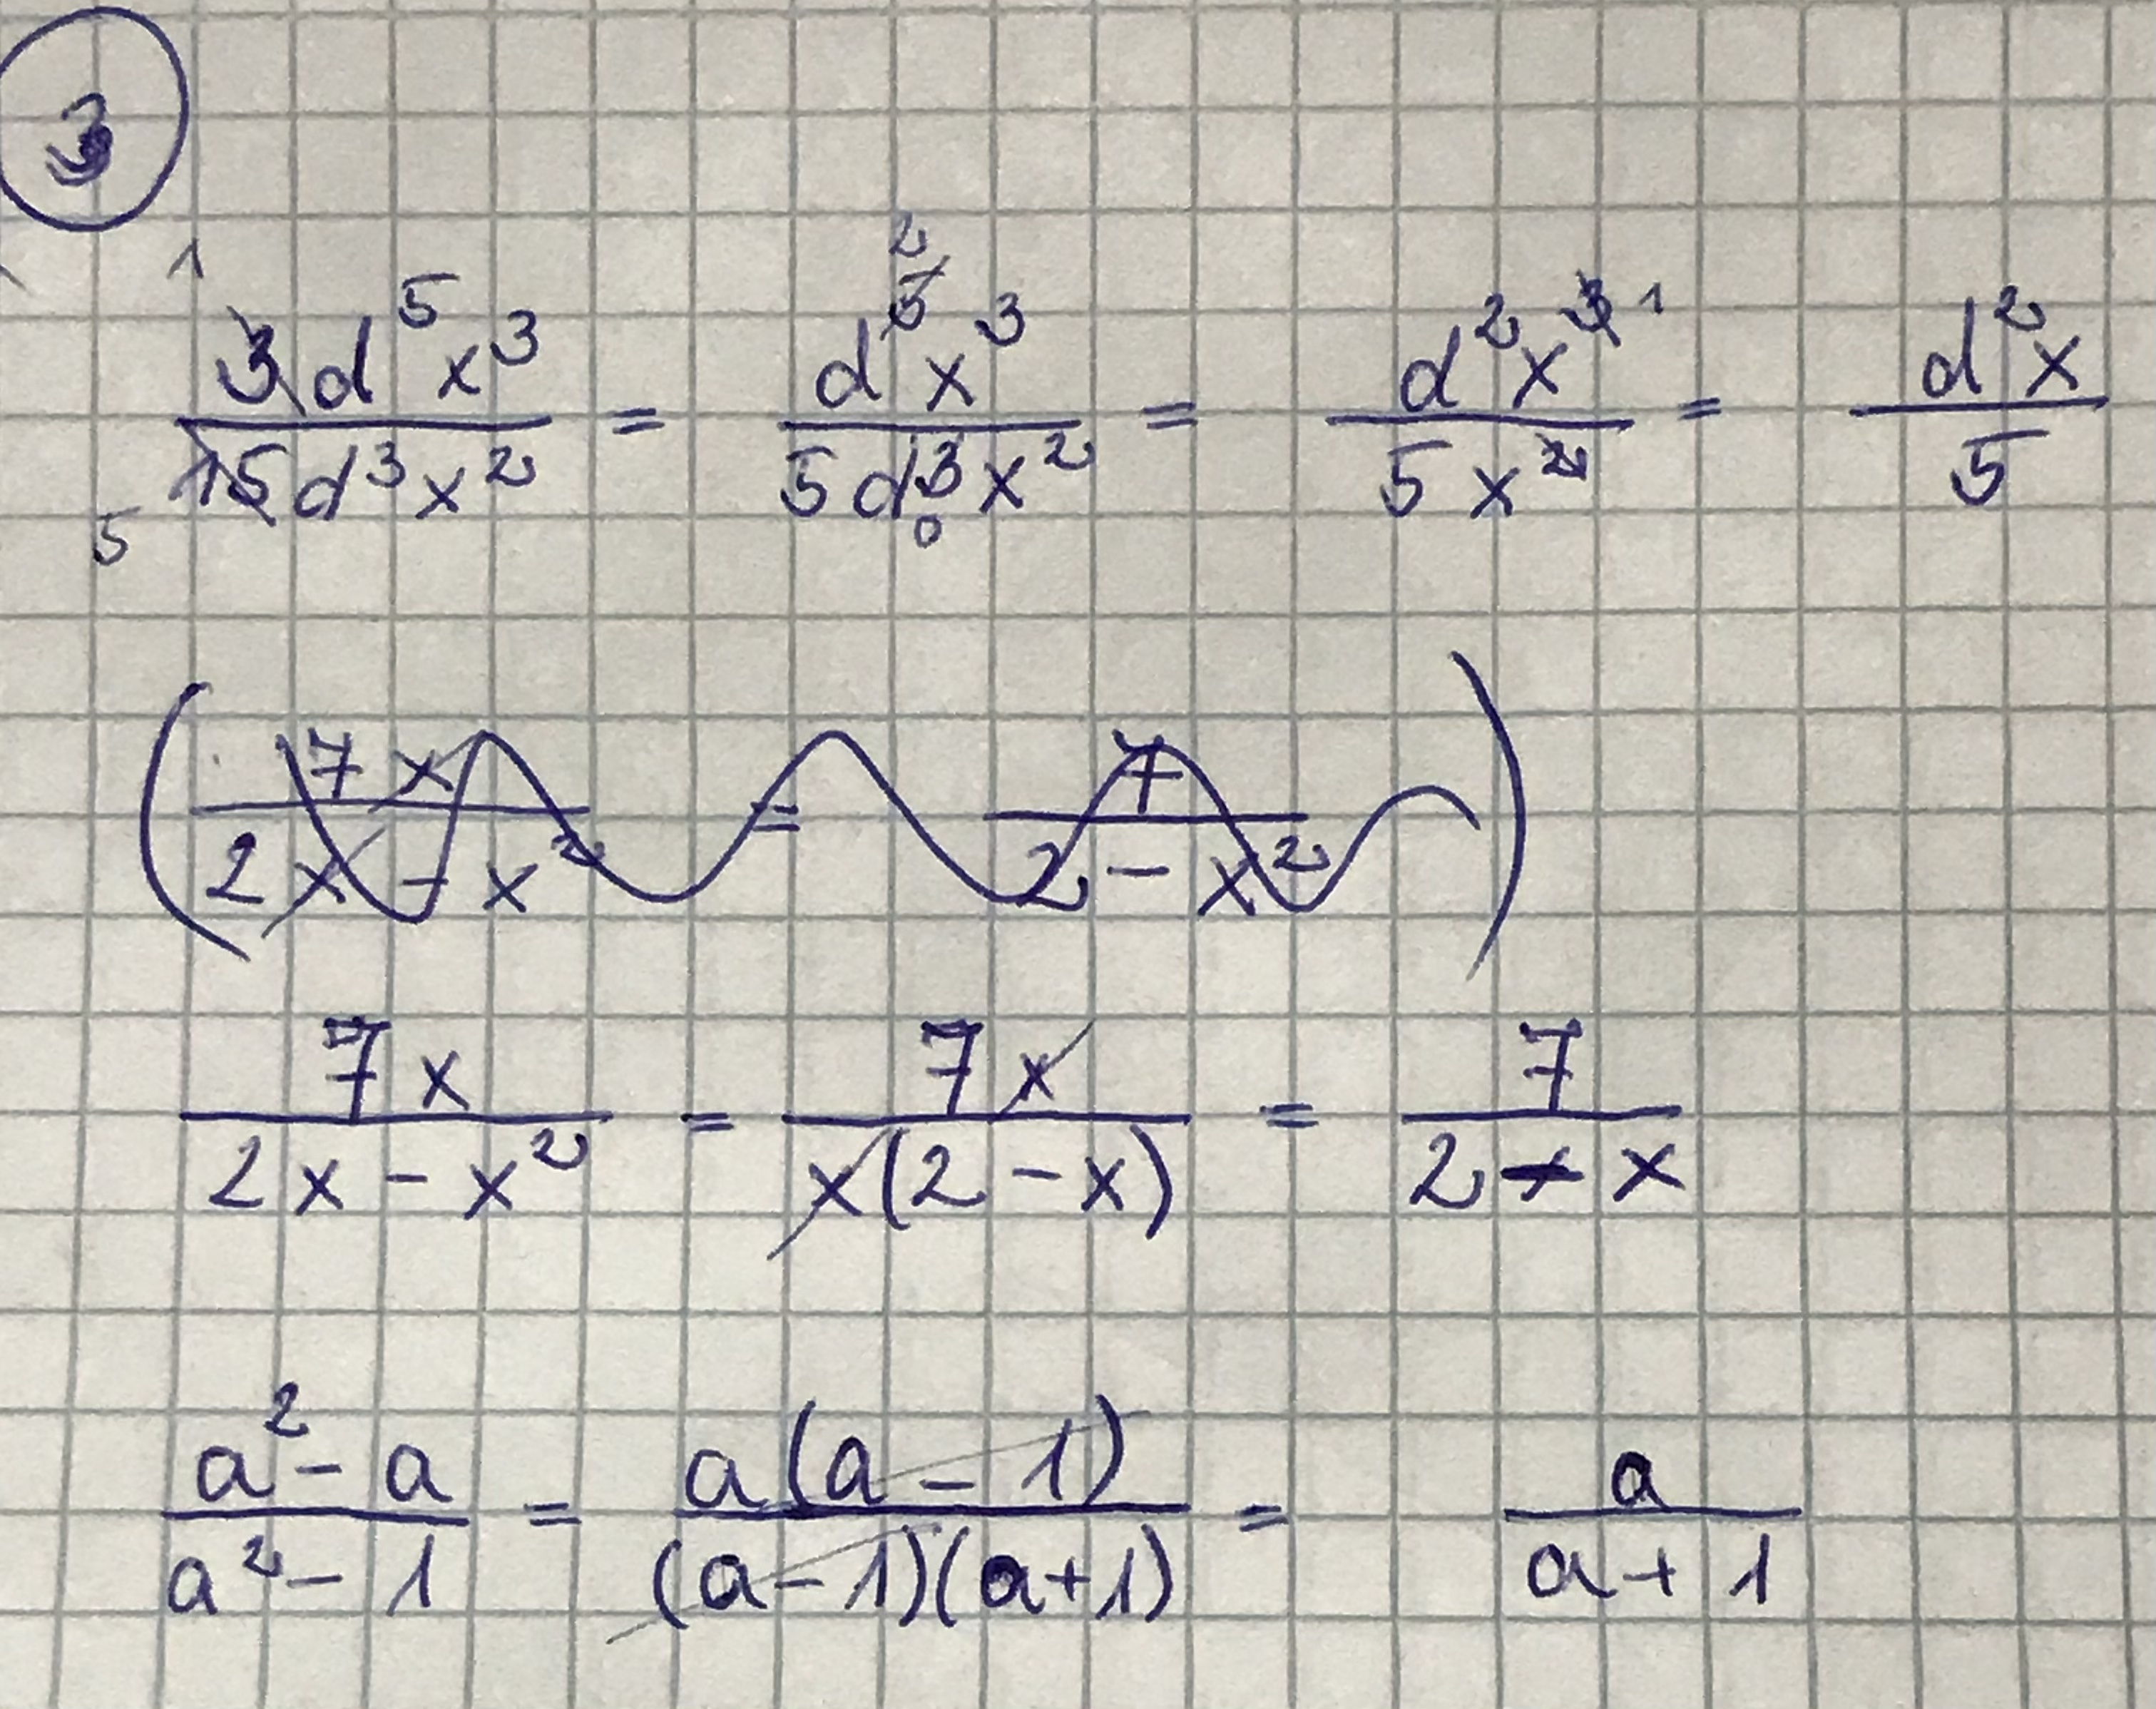 3
3d⁵x³/15d³x² = d⁵x³/5d³x² = d²x³/5x² = d²x/5
(7x/2x - x² = 7/2 - x²)
7x/2x - x² = 7x/x(2 - x) = 7/2 - x
a² - a/a² - 1 = a(a - 1)/(a - 1)(a + 1) = a/a + 1